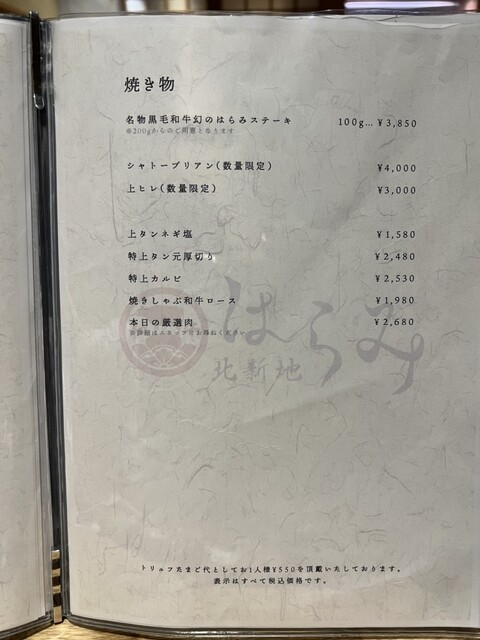 焼き物
名物黒毛和牛幻のはらみステーキ 100g…¥3,850
※200gからのご用意となります
シャトーブリアン(数量限定) ¥4,000
上ヒレ(数量限定) ¥3,000
上タンネギ塩 ¥1,580
特上タン元厚切り ¥2,480
特上カルビ ¥2,530
焼きしゃぶ和牛ロース ¥1,980
本日の厳選肉 ¥2,680
※詳細はスタッフにお尋ねください
はらみ
北新地
トリュフたまご代としてお1人様¥550を頂戴いたしております。
表示はすべて税込価格です。